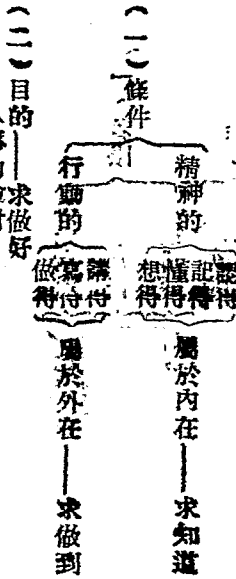 （一）條件
精神的
認得
記得
懂得
想得
屬於內在——求知道
行動的
講得
寫得
做得
屬於外在——求做到
（二）目的——求做好